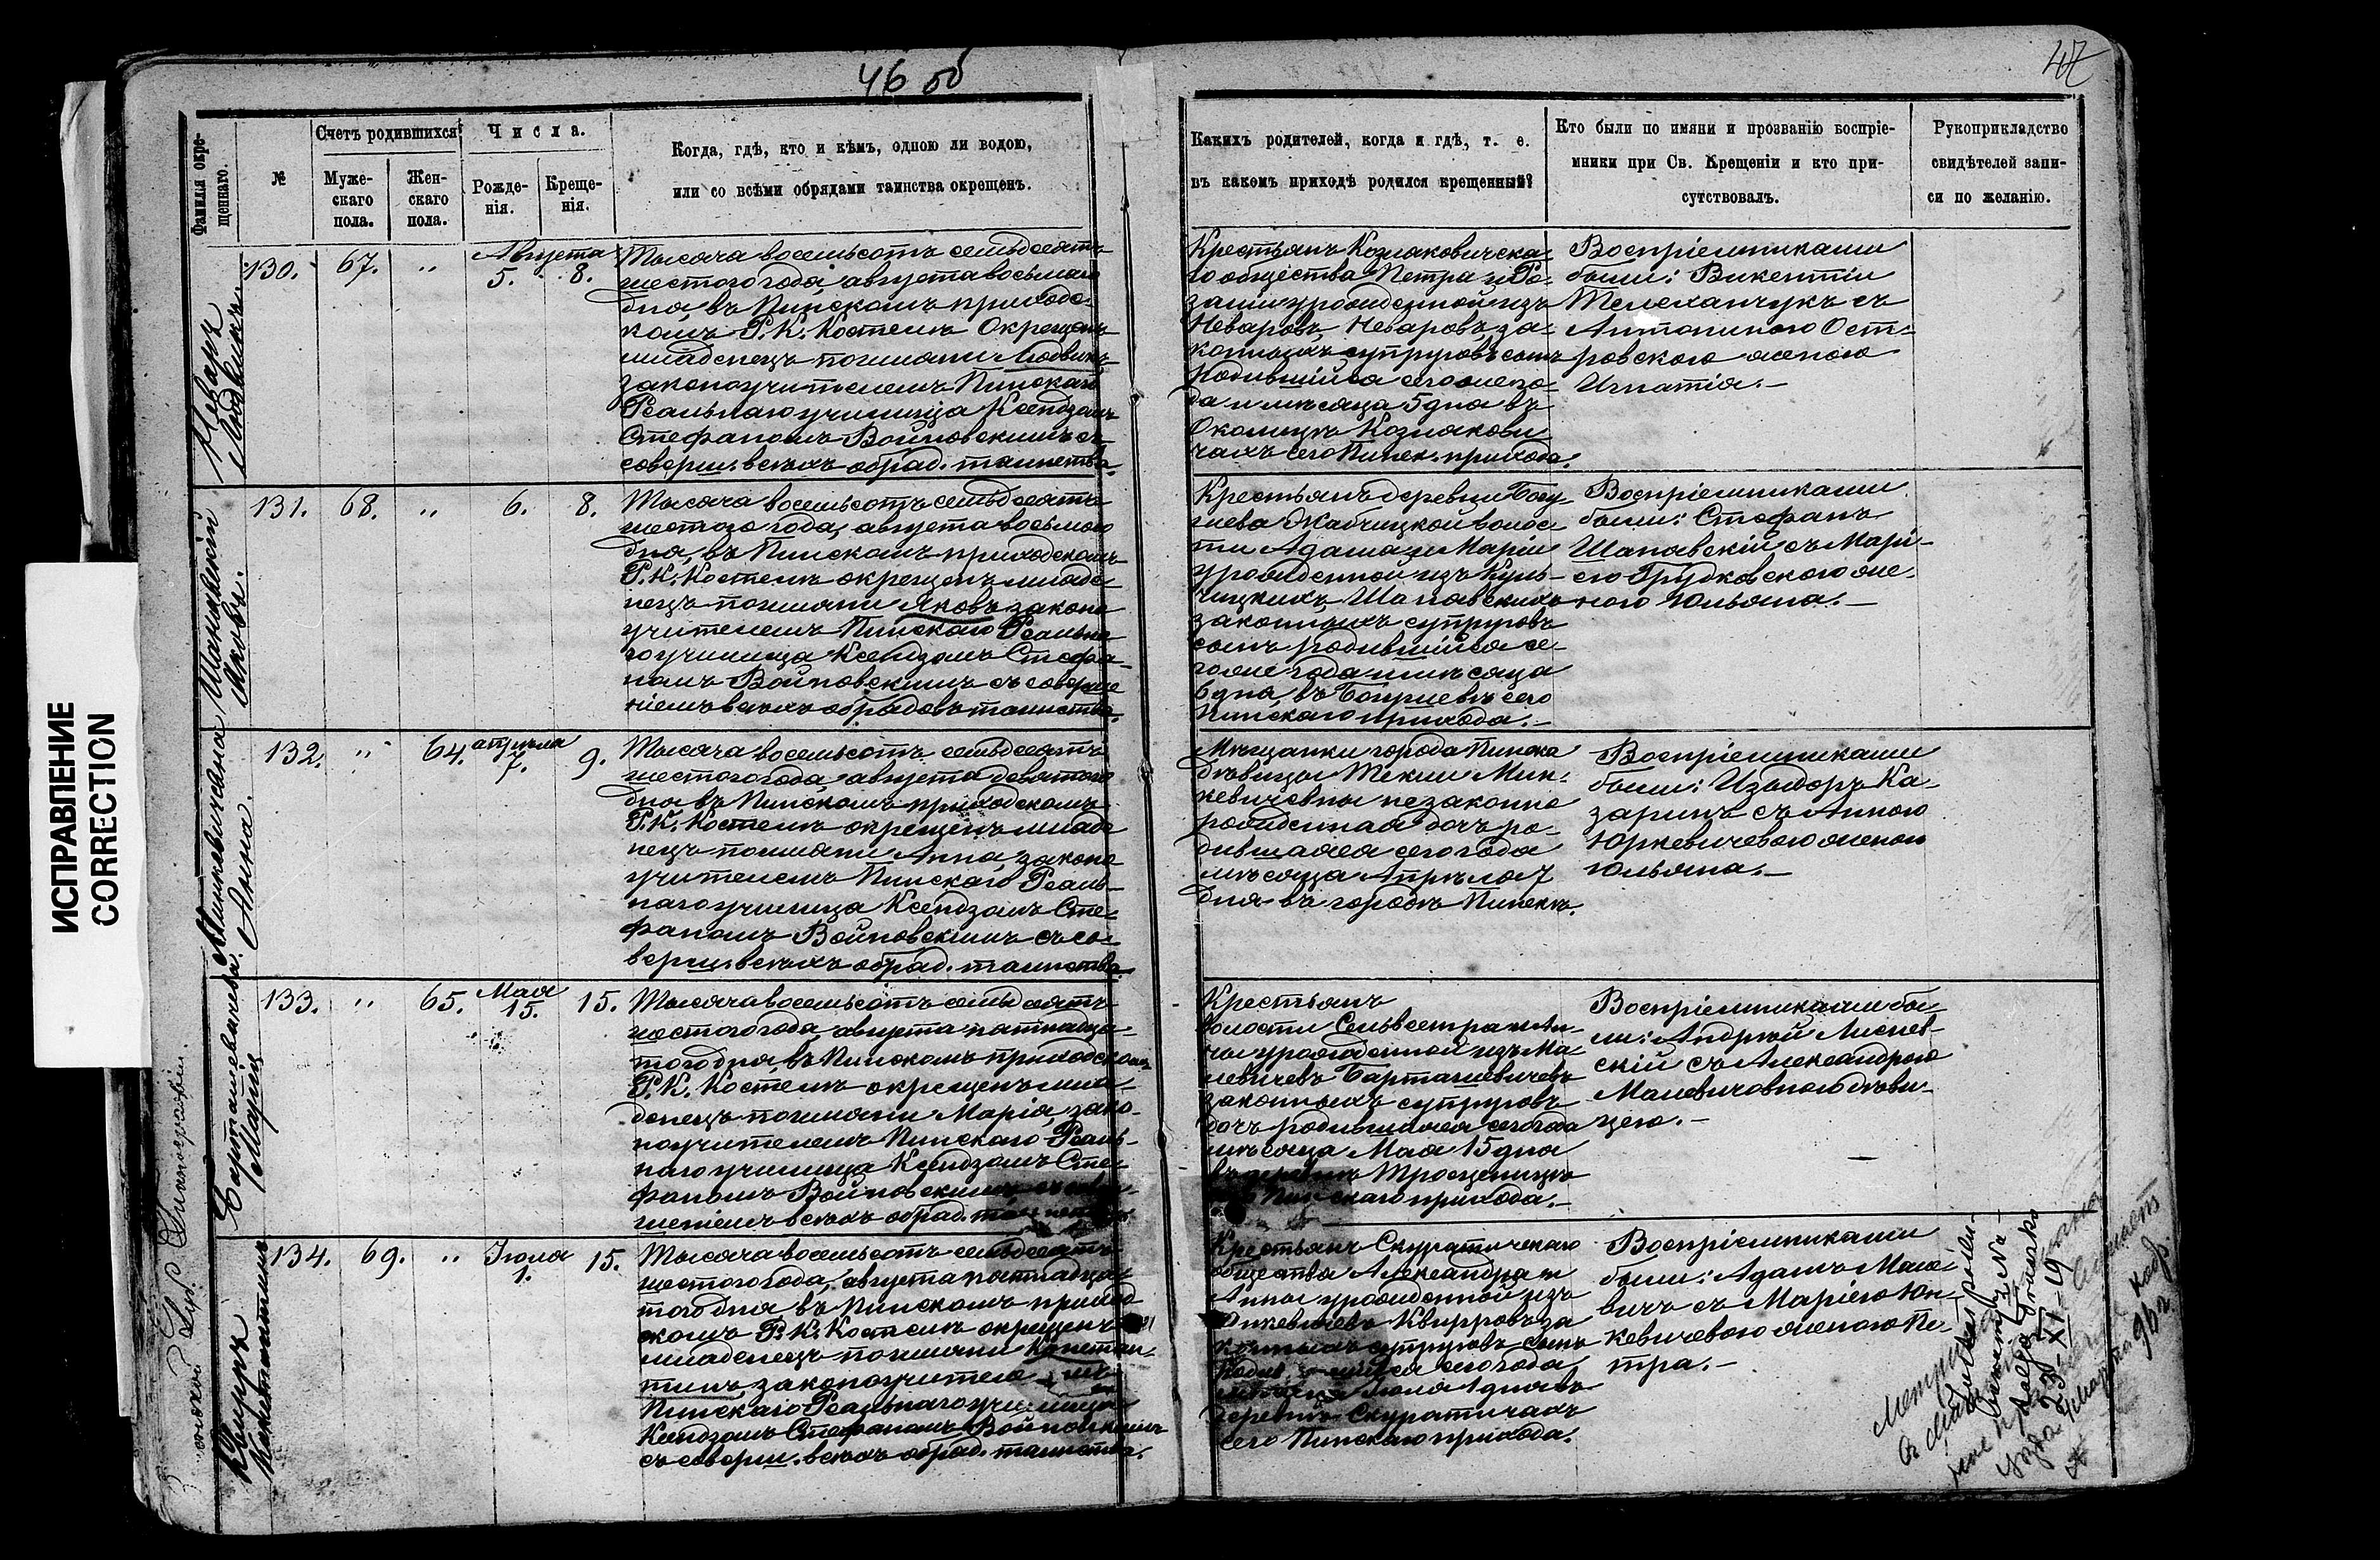 46 об
47
ИСПРАВЛЕНИЕ
CORRECTION
Фамилія окре-
щеннаго.
№
Счетъ родившихся
Муже-
скаго
пола.
Жен-
скаго
пола.
Числа.
Рожде-
нія.
Креще-
нія.
Когда, гдѣ, кто и кѣмъ, одною ли водою,
или со всѣми обрядами таинства окрещенъ.
Какихъ родителей, когда и гдѣ, т. е.
въ какомъ приходѣ родился крещенный?
Кто были по имяни и прозванію воспріе-
мники при Св. Крещеніи и кто при-
сутствовалъ.
Рукоприкладство
свидѣтелей запи-
си по желанію.
Неваръ
Людвикъ.
130. 67. „ Августа
5. 8.
Тысяча восемьсотъ семьдесятъ
шестого года, августа восьмаго
дня, въ Пинскомъ приходс-
комъ Р. К. Костелѣ Окрещенъ
младенецъ поимяни Людвикъ
законоучителемъ Пинскаго
Реальнаго училища Ксендзомъ
Стефаномъ Войновскимъ съ
соверш. всѣхъ обряд. таинства.
Крестьянъ Козляковичска-
го общества Петра и Ро-
заліи урожденной изъ
Неваровъ, Неваровъ, за-
конныхъ супруговъ сынъ
Родившійся сегоже го-
да и мѣсяца 5 дня въ
Околицѣ Козлякови
чахъ сего Пинск. прихода.
Воспріемниками
были: Викентій
Телеханчукъ съ
Антониною Ост-
ровского женою
Игнатія.-
Шапавскій
Яковъ.
131. 68. „ 6. 8.
Тысяча восемьсотъ семьдесятъ
шестого года, августа восьмого
дня, въ Пинскомъ приходскомъ
Р. К. Костелѣ окрещенъ младе
нецъ поимяни Яковъ законо
учителемъ Пинскаго Реальна
го училища Ксендзомъ Стефа-
номъ Войновскимъ съ соверше
ніемъ всѣхъ обрядовъ таинства.
Крестьянъ деревни Богу-
шева Жабчицкой волос
ти Адама и Маріи
урожденной изъ Куль-
чицкихъ Шапавскихъ
законныхъ супруговъ
сынъ родившійся се-
гоже года и мѣсяца
6 дня, въ Богушевѣ сего
Пинскаго прихода.-
Воспріемниками
были: Стефанъ
Шапавскій съ Марі-
ею Грудковского же-
ною Юльяна.-
Минкевичевна
Анна.
132. „ 64. апрѣля
7. 9.
Тысяча восемьсотъ семьдесятъ
шестого года, августа девятого
дня въ Пинскомъ приходскомъ
Р. К. Костелѣ окрещенъ младе
нецъ поимяни Анна, законо
учителемъ Пинскаго Реаль-
наго училища Ксендзомъ Сте-
фаномъ Войновскимъ съ со-
верш. всѣхъ обряд. таинства.
Мѣщанки города Пинска
дѣвицы Текли Мин-
кевичевны незаконно
рожденная дочь ро-
дившаяся сего года
мѣсяца Апрѣля 7
дня въ городѣ Пинскѣ.
Воспріемниками
были: Изыдоръ Ка-
заринъ съ Анною
Юркевичевою женою
Юльяна.-
Барташевичевна
Марія
133. „ 65. Мая
15. 15.
Тысяча восемьсотъ семьдесятъ
шестого года, августа пятнадца-
того дня, въ Пинскомъ приходскомъ
Р. К. Костелѣ окрещенъ мла-
денецъ поимяни Марія, зако-
ноучителемъ Пинскаго Реаль-
наго училища Ксендзомъ Сте-
фаномъ Войновскимъ
шеніемъ всѣхъ обряд.
Крестьянъ
волости Сельвестра и Ан-
ны урожденной изъ Ма-
левичевъ Барташевичевъ
законныхъ супруговъ
дочь родившаяся сего года
мѣсяца Мая 15 дня
въ деревнѣ
Пинскаго прихода.-
Воспріемниками бы-
ли: Андрей
скій съ Александрою
Малевичовною дѣви-
цею.-
Квирръ
Константинъ
134. 69. „ Іюля
1. 15.
Тысяча восемьсотъ семьдесятъ
шестого года, августа пятнадца-
того дня въ Пинскомъ приход
скомъ Р. К. Костелѣ окрещенъ
младенецъ поимяни Констан-
тинъ, законоучителемъ
Пинскаго Реальнаго училища
Ксендзомъ Стефаномъ Войновскимъ
съ соверш. всѣхъ обряд. таинства.
Крестьянъ Скуратическаго
общества Александра и
Анны урожденной изъ
Юнкевичевъ Квирровъ за
конныхъ супруговъ сынъ
сего года
мѣсяца Іюля 1 дня въ
деревнѣ Скуратичахъ
сего Пинскаго прихода.
Воспріемниками
были: Адамъ
вичъ съ Маріею Юн-
кевичевою женою Пе-
тра.-